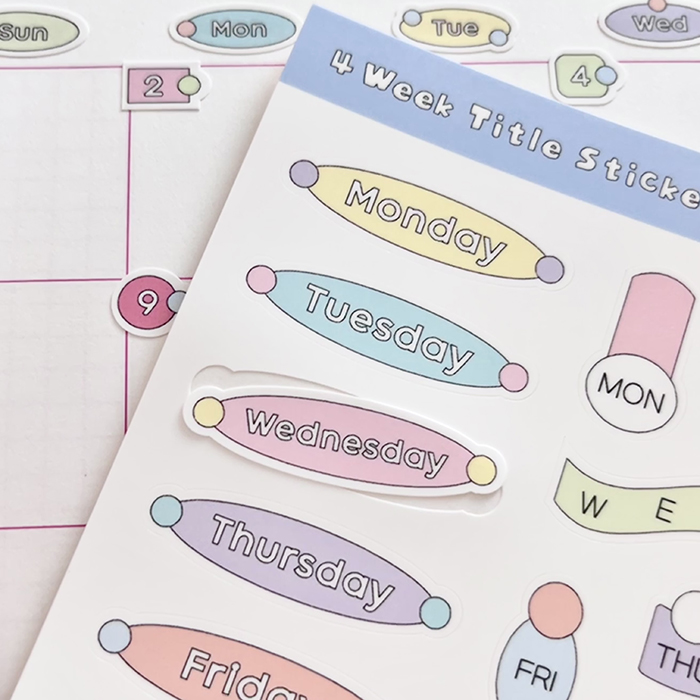 Sun
Mon
Tue
Wed
2
4
9
4 Week Title Sticke
Monday
Tuesday
Wednesday
Thursday
Friday
MON
W E
FRI
THU